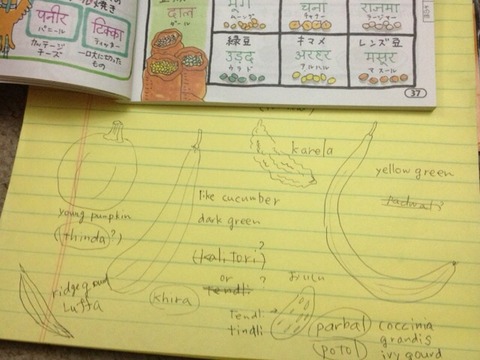 पनीर
パニール
カッテージ
チーズ
टिक्का
ティッカー
一口大に切った
もの
दाल
ダール
मूंग
ムーング
चना
チャナー
राजमा
ラージマー
緑豆
キマメ
レンズ豆
उड़द
ウラド
अरहर
アルハル
मसूर
マスール
37
karela
yellow green
like cucumber
dark green
young pumpkin
(thinda?)
(kal, tori)?
or
tendli ?
khira
ridge gourd
Luffa
tendli
tindli
parbal
(potol)
coccinia
grandis
ivy gourd